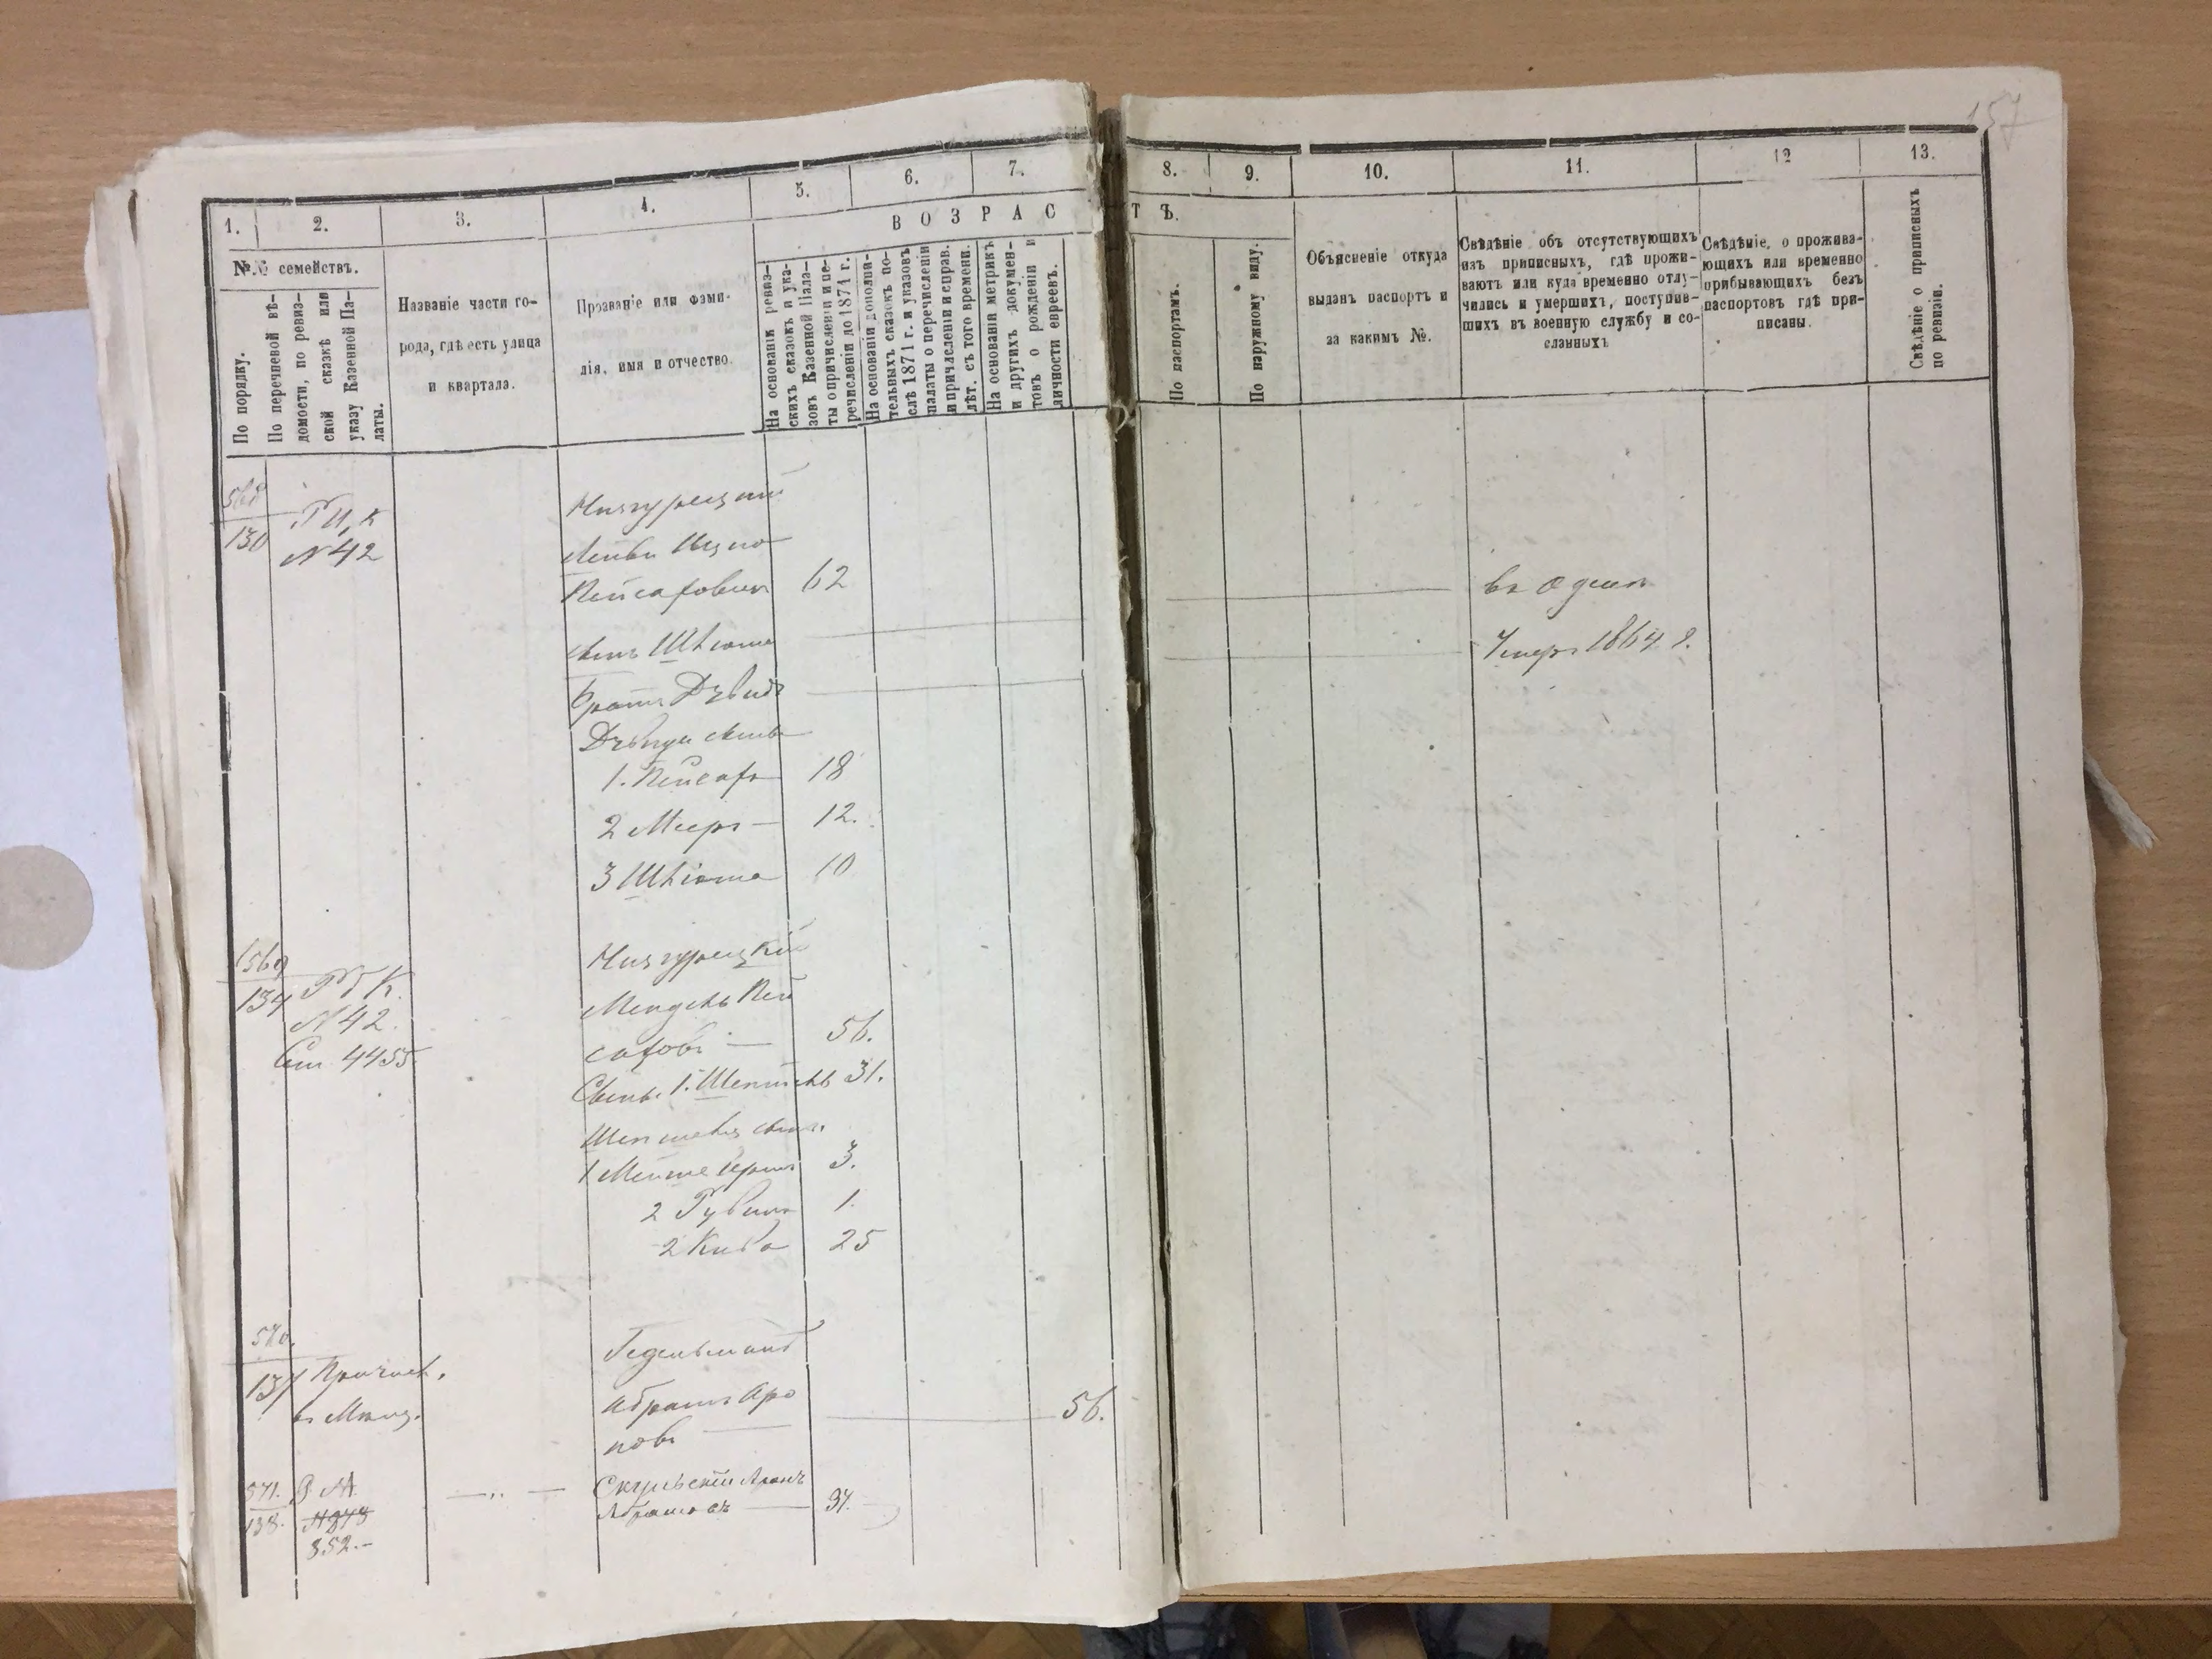 157
1.
2.
3.
4.
5.
6.
7.
8.
9.
10.
11.
12
13.
ВОЗРАС
ТЪ.
№№ семействъ.
По порядку.
По перечневой вѣ-
домости, по ревиз-
ской сказкѣ или
указу Казенной Па-
латы.
Названіе части го-
рода, гдѣ есть улица
и квартала.
Прозваніе или фами-
лія, имя и отчество.
На основаніи ревиз-
скихъ сказокъ и ука-
зовъ Казенной Пала-
ты о причисленіи и пе-
речисленіи до 1871 г.
На основаніи дополни-
тельныхъ сказокъ по-
слѣ 1871 г. и указовъ
палаты о перечисленіи
и причисленіи и справ.
лѣт. съ того времени.
На основаніи метрикъ
и другихъ докумен-
товъ о рожденіи и
личности евреевъ.
По паспортамъ.
По наружному виду.
Объясненіе откуда
выданъ паспортъ и
за какимъ №.
Свѣдѣніе объ отсутствующихъ
изъ приписныхъ, гдѣ прожи-
ваютъ или куда временно отлу-
чились и умершихъ, поступив-
шихъ въ военную службу и со-
сланныхъ
Свѣдѣніе, о прожива-
ющихъ или временно
прибывающихъ безъ
паспортовъ гдѣ при-
писаны.
Свѣдѣніе о приписныхъ
по ревизіи.
568
130
N 42
Низгурецкій
Лейба Ицко
Пейсаховичъ 62
въ Одессѣ
сынъ Шлiома
Умеръ 1864 г.
братъ Дувидъ
Дувида сыновья
1. Пейсахъ 18
2 Мееръ — 12.
3 Шлiома 10
569
134
Р К.
N 42.
Ст 4455
Низгурецкій
Мендель Пей
саховъ — 56.
Сынъ 1. Шепшель 31.
Шепшеля сын.
1 Мойше Гершъ 3.
2 Рувинъ 1.
2 Кива 25
570.
137
Причисл.
въ Мѣщ.
Гедельманъ
Абрамъ Аро
новъ — 56.
571.
138.
352.-
Сквирскій Аронъ
Абрамовъ — 37.